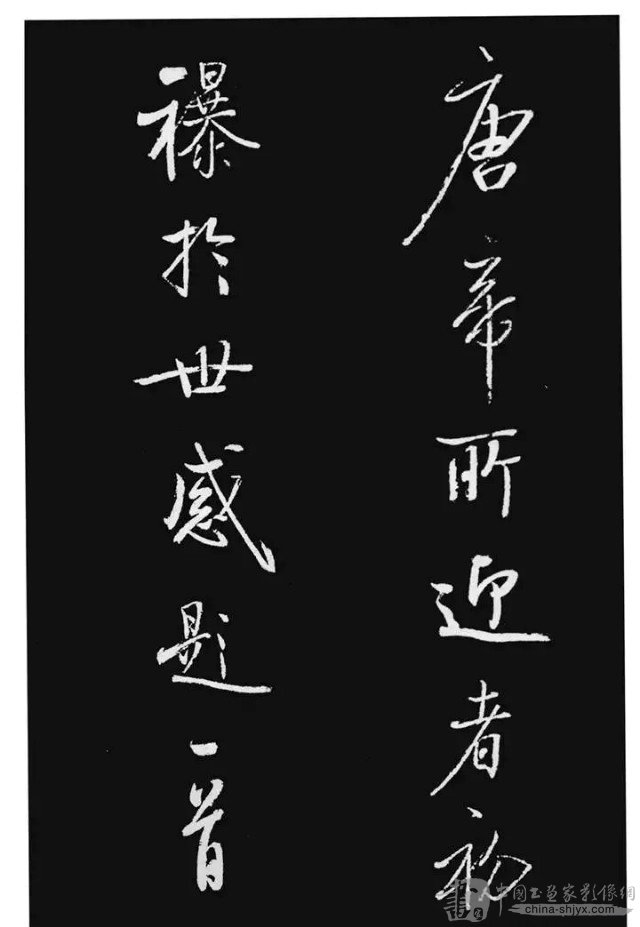 唐帝所迎者初
襮於世感題一首
中国书画家影像网
china-shjyx.com